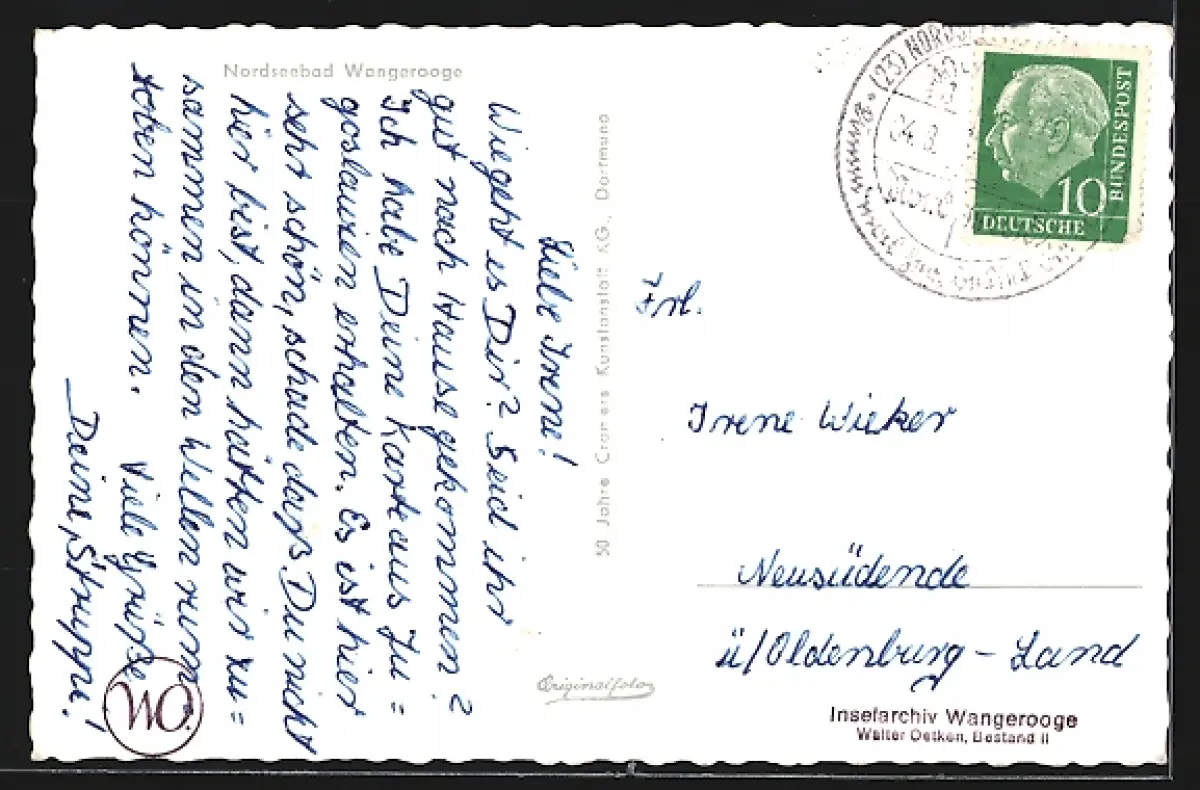 Nordseebad Wangerooge
Liebe Irene!
Wie geht es Dir? Seid ihr
gut nach Hause gekommen?
Ich habe Deine Karte aus Ju=
goslavien erhalten. Es ist hier
sehr schön, schade daß Du nicht
hier bist, dann hätten wir zu=
sammen in den Wellen rum
toben können.
Viele Grüße
Deine, Struppi!
WO
50 Jahre Cramers Kunstanstalt KG., Dortmund
Originalfoto
(23) NORDS
04. 8.
10
DEUTSCHE
BUNDESPOST
Frl.
Irene Wieker
Neusüdende
ü/Oldenburg - Land
Inselarchiv Wangerooge
Walter Oetken, Bestand II